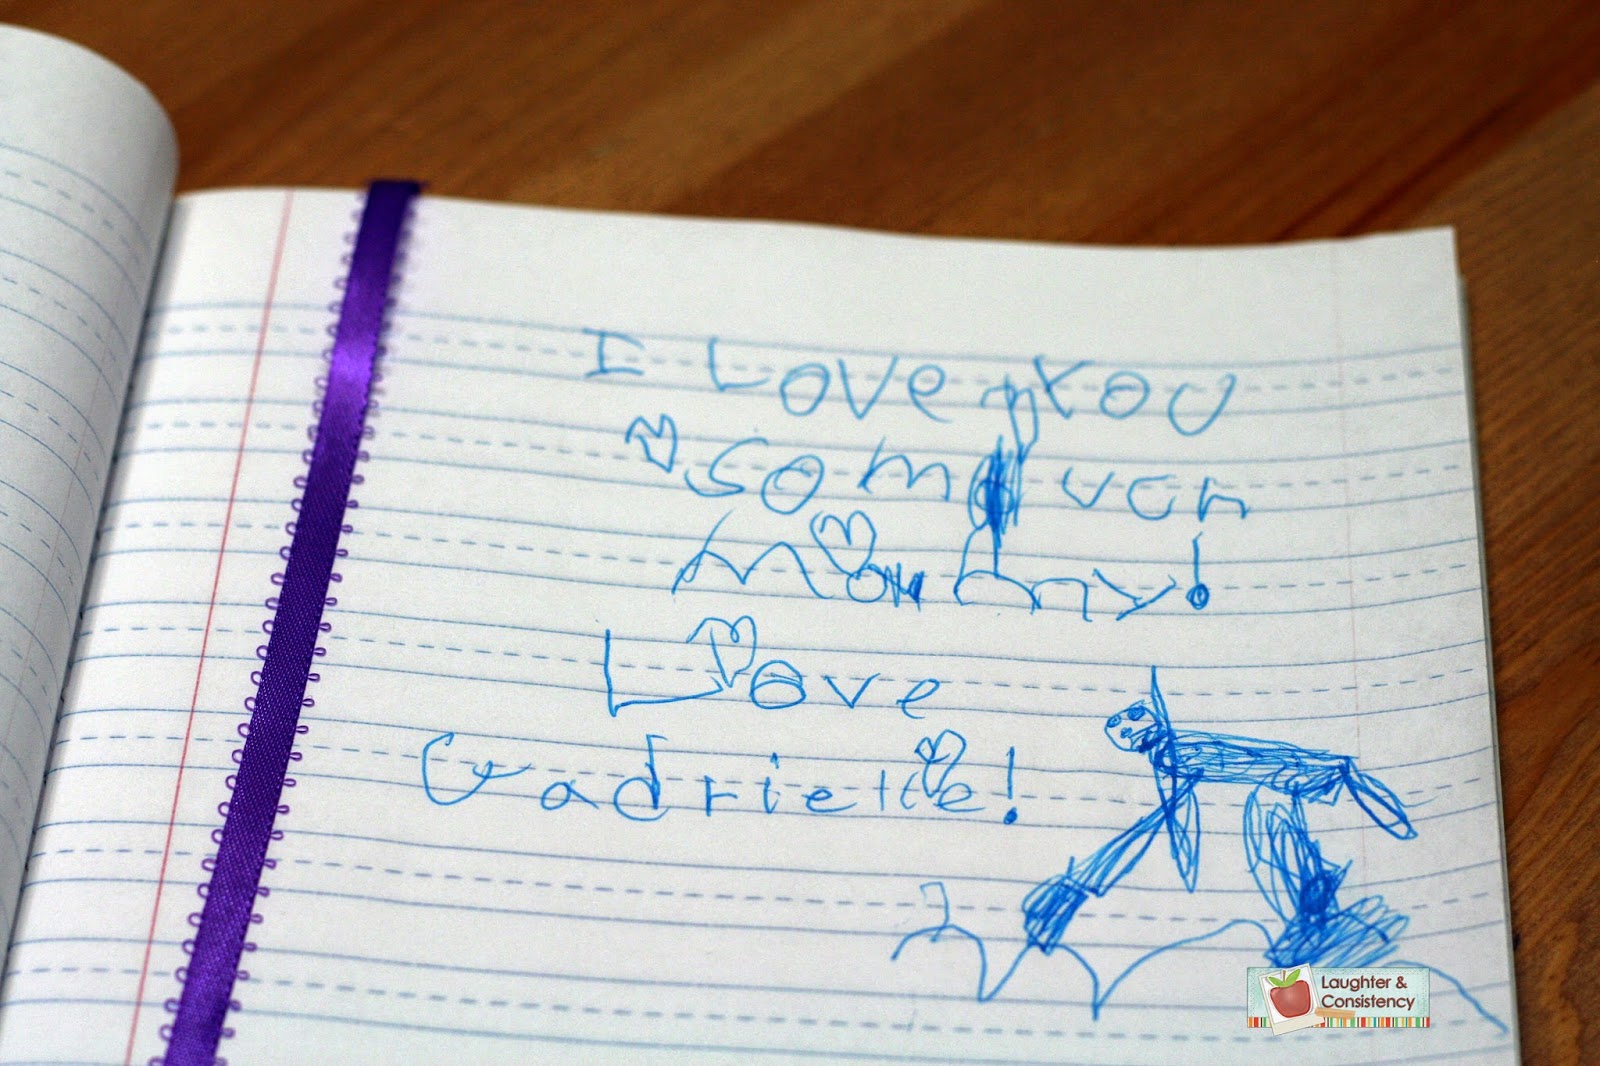 I Love You
So m uch
Mommy!
Love
Gabrielle!
Laughter &
Consistency